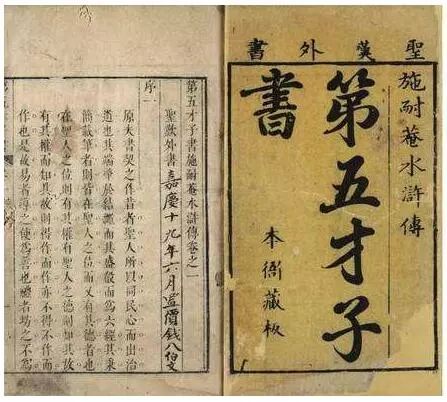 聖歎外書
施耐菴水滸傳
第五才子
書
本衙藏板
第五才子書施耐菴水滸傳卷之一
聖歎外書 嘉慶十九年六月置價錢八伯文
序一
原夫書契之作昔者聖人所以同民心而出治
道也其端肇於結繩而其盛殽而爲六經其秉
簡載筆者則皆在聖人之位而又有其德者也
在聖人之位則有其權有聖人之德則知其故
有其權而知其故則得作而作亦不得不作而
作也是故易者導之使爲善也禮者坊之不爲